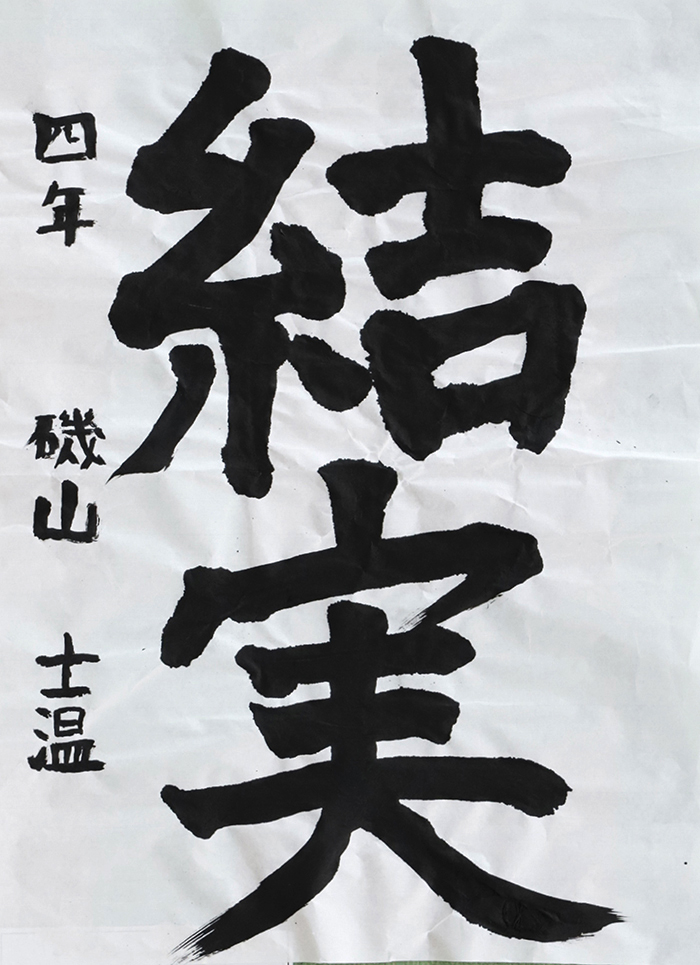 結実
四年 磯山 士温